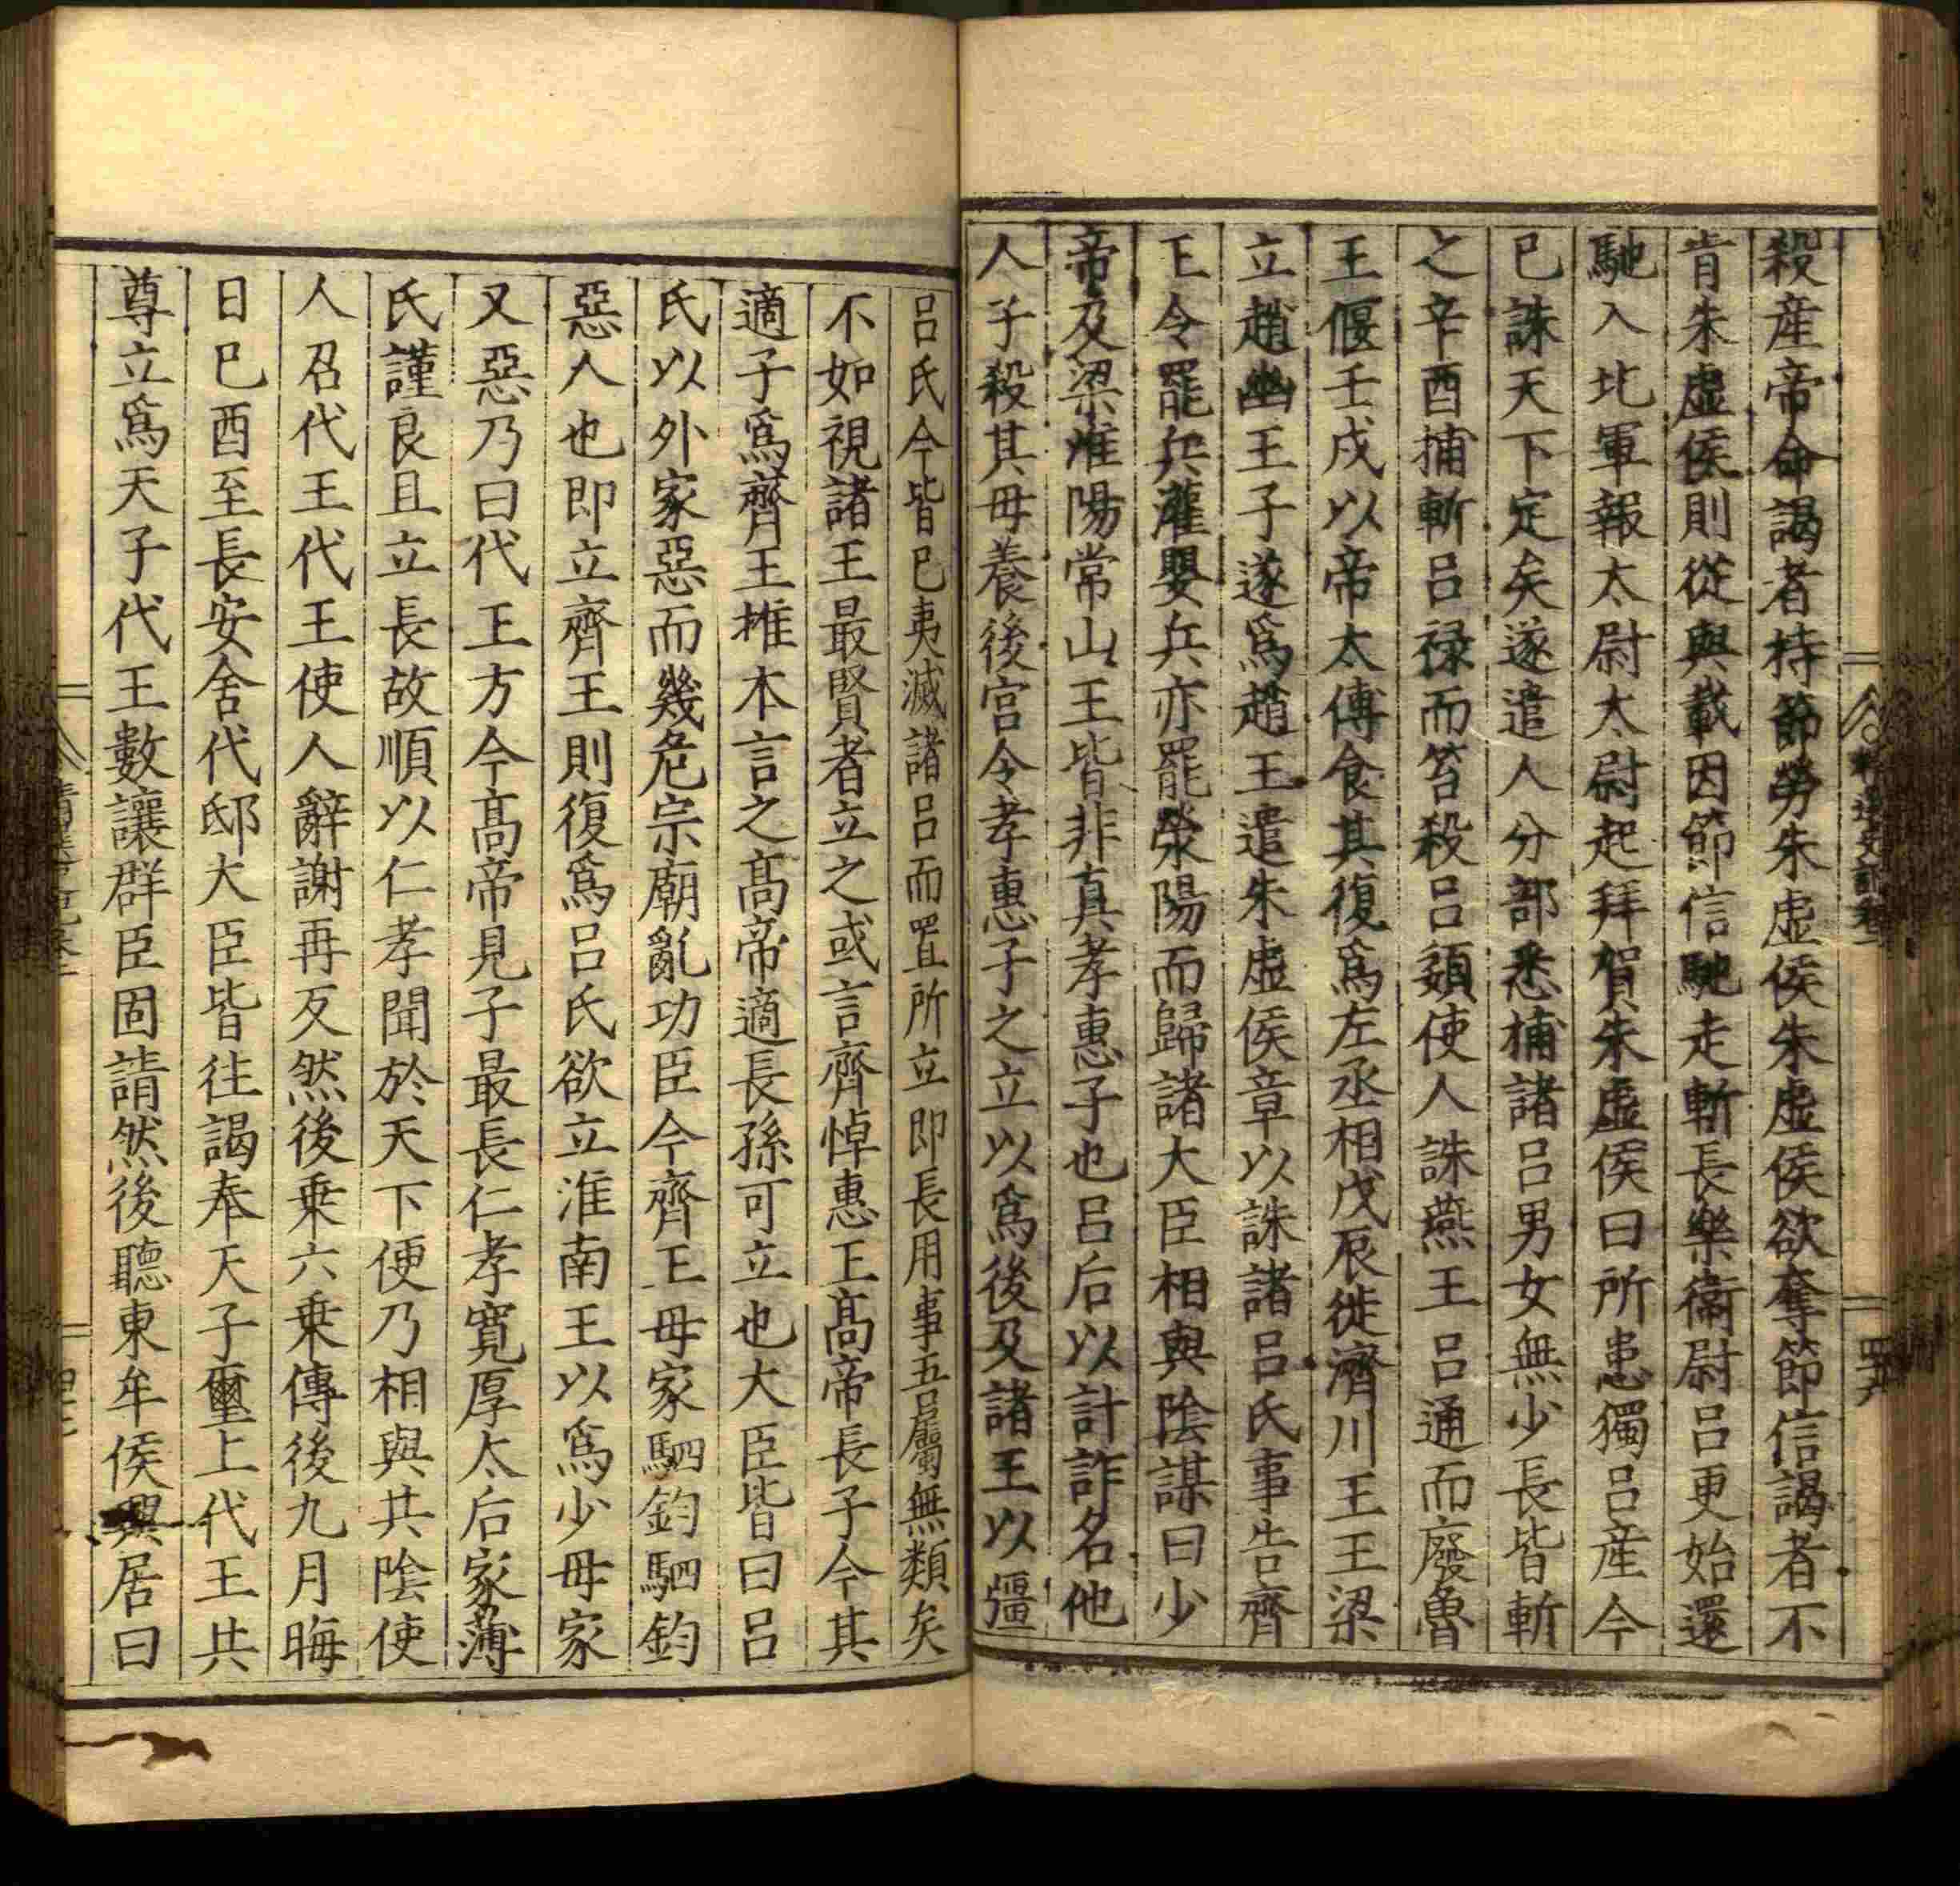 殺産帝命謁者持節勞朱虛侯朱虛侯欲奪節信謁者不
肯朱虛侯則從與載因節信馳走斬長樂衞尉呂更始還
馳入北軍報太尉太尉起拜賀朱虛侯曰所患獨呂産今
已誅天下定矣遂遣人分部悉捕諸呂男女無少長皆斬
之辛酉捕斬呂禄而笞殺呂頞使人誅燕王呂通而廢魯
王偃壬戌以帝太傅食其復爲左丞相戊辰徙濟川王王梁
立趙幽王子遂爲趙王遣朱虛侯章以誅諸呂氏事告齊
王令罷兵灌嬰兵亦罷滎陽而歸諸大臣相與陰謀曰少
帝及梁淮陽常山王皆非真孝惠子也呂后以計詐名他
人子殺其母養後宮令孝惠子之立以爲後及諸王以彊
呂氏今皆已夷滅諸呂而置所立即長用事吾屬無類矣
不如視諸王最賢者立之或言齊悼惠王高帝長子今其
適子爲齊王推本言之高帝適長孫可立也大臣皆曰呂
氏以外家惡而幾危宗廟亂功臣今齊王母家駟鈞駟鈞
惡人也即立齊王則復爲呂氏欲立淮南王以爲少母家
又惡乃曰代王方今高帝見子最長仁孝寬厚太后家薄
氏謹良且立長故順以仁孝聞於天下便乃相與共陰使
人召代王代王使人辭謝再反然後乗六乗傳後九月晦
日已酉至長安舍代邸大臣皆往謁奉天子璽上代王共
尊立爲天子代王數讓群臣固請然後聽東牟侯興居曰